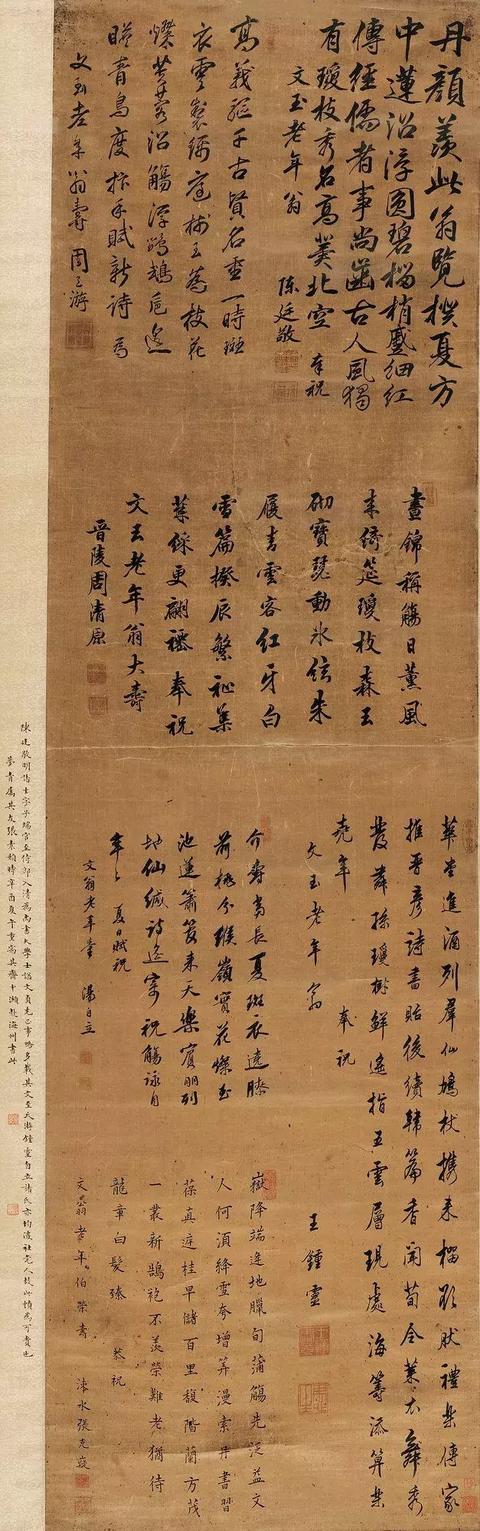 丹顏羨此翁覽揆夏方
中蓮沼浮圓碧榴梢蹙細紅
傳經儒者事尚齒古人風獨
有瓊枝秀名高冀北空
文玉老年翁
陳廷敬
奉祝
高義組千古賢名垂一時斑
衣雲裂綺寶樹玉為枝花
燦芙蓉沼觴浮鸂鶒卮遙
瞻青鳥度拈手賦新詩為
文玉老年翁壽 周之游
晝錦稱觴日薰風
來綺筵瓊枝森玉
砌寶瑟動冰弦朱
履青雲客紅牙白
雪篇揆辰繁祉集
萊綵更翩躚奉祝
文玉老年翁大壽
晉陵周清原
華堂進酒列群仙鳩杖攜來榴歌狀禮樂傳家
推晉彥詩書貽後續韓篇香聞荀令萊衣舞秀
發蘭孫瓊樹鮮遙指五雲層現處海籌添算樂
堯年
奉祝
文玉老年翁
王鍾靈
介壽當長夏斑衣遶膝
前極分緱嶺寶花燦玉
池蓮簫笈來天樂賓朋列
地仙緘詩遙寄祝觴詠自
年年 夏日賦祝
文翁老年臺
湯自立
嶽降端逢地臘旬蒲觴先泛益文
人何須絳雪夸增算漫索丹書習
葆真庭桂早儲百里馥階蘭方茂
一叢新鵠袍不羨榮難老猶待
龍章白髮臻 恭祝
文翁老年伯榮壽
涑水張克嶷